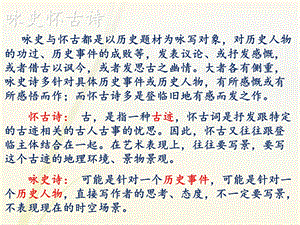 咏史怀古诗
咏史与怀古都是以历史题材为咏写对象，对历史人物
的功过、历史事件的成败等，发表议论、或抒发感慨，
或者借古以讽今，或者发思古之幽情。大者各有侧重，
咏史诗多针对具体历史事件或历史人物，有所感慨或有
所感悟而作；而怀古诗多是登临旧地有感而发之作。
怀古诗： 古，是指一种古迹，怀古词是抒发跟特定
的古迹相关的古人古事的忧思。因此，怀古又往往跟登
临主体结合在一起。在艺术表现上，往往要写景，要写
这个古迹的地理环境、景物景观。
咏史诗： 可能是针对一个历史事件，可能是针对一
个历史人物，直接写作者的思考、态度，不一定要写景，
不表现现在的时空场景。